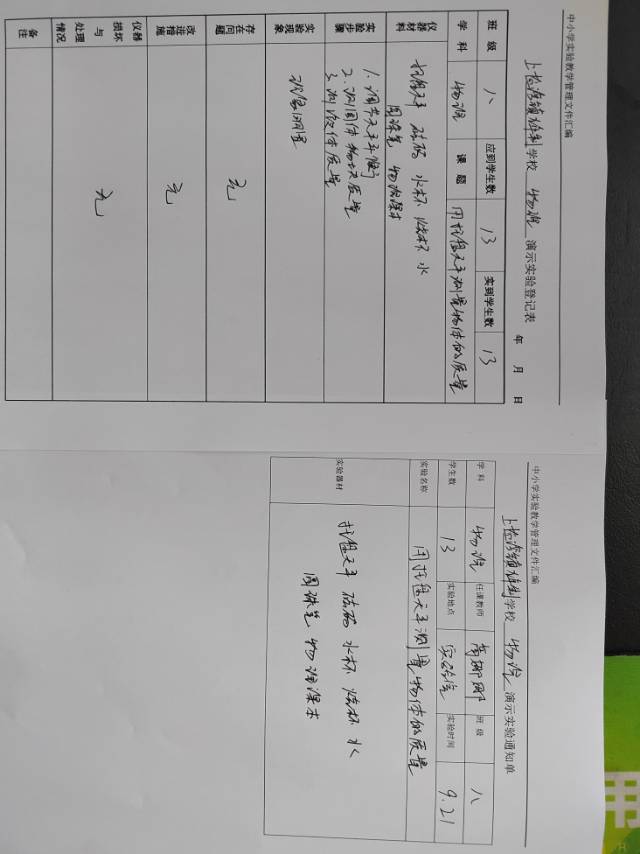 中小学实验教学管理文件汇编
学校 物理 演示实验登记表 年 月 日
班级 八 应到学生数 13 实到学生数 13
学科 物理 课题 用托盘天平测量物体的质量
仪器材料 托盘天平 砝码 水杯 烧杯 水
圆珠笔 物理课本
实验步骤 1.调节天平平衡
2.测固体物块质量
3.测液体质量
实验现象 现象明显
存在问题 无
改进措施 无
仪器损坏与处理情况 无
备注
中小学实验教学管理文件汇编
学校 物理 演示实验通知单
学科 物理 任课教师 班级 八
学生数 13 实验地点 实验室 实验时间 9.21
实验名称 用托盘天平测量物体的质量
实验器材 托盘天平 砝码 水杯 烧杯 水
圆珠笔 物理课本
用